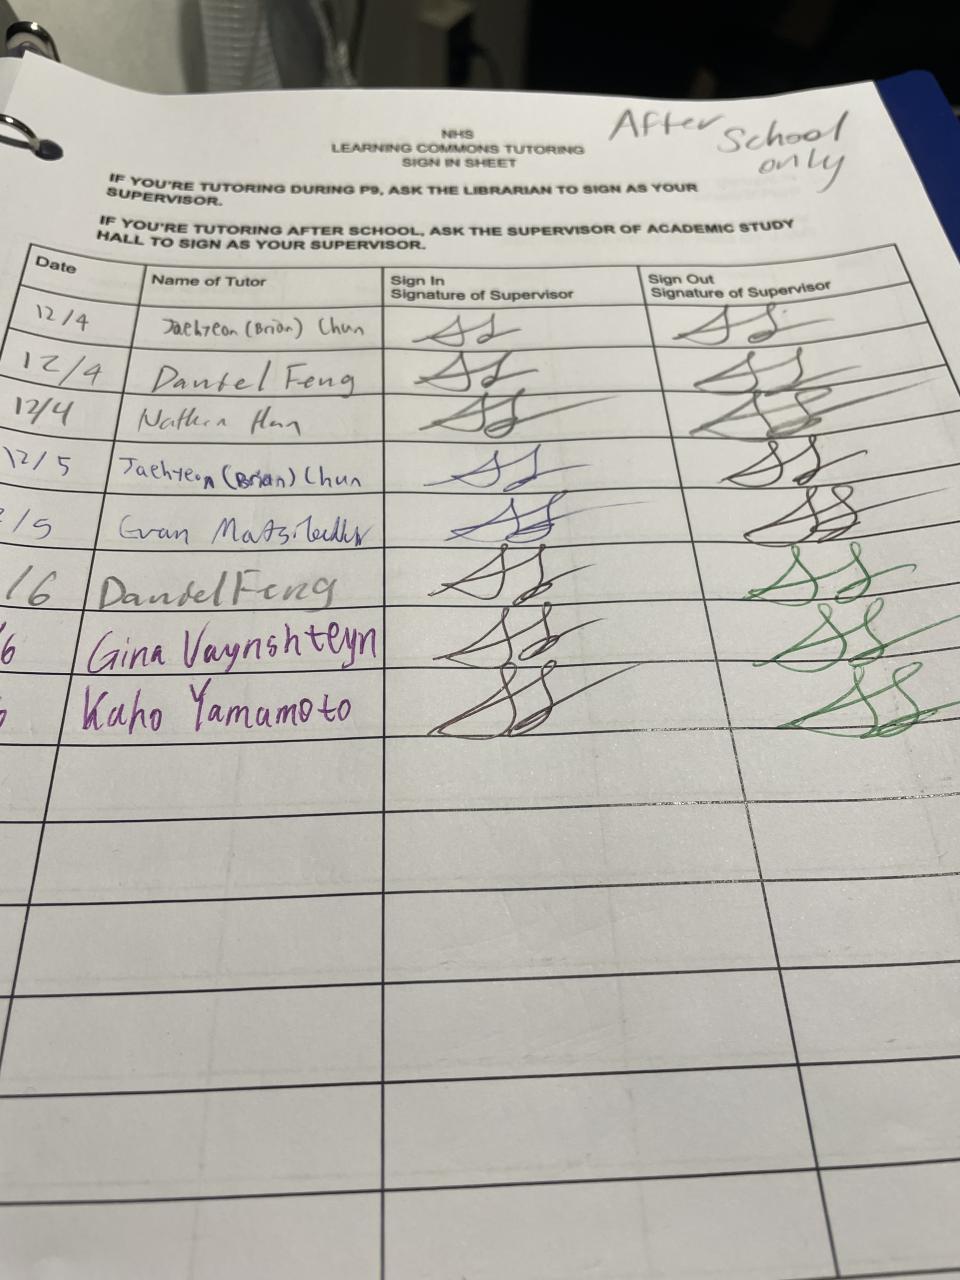 After School only
NHS
LEARNING COMMONS TUTORING
SIGN IN SHEET
IF YOU'RE TUTORING DURING P9, ASK THE LIBRARIAN TO SIGN AS YOUR
SUPERVISOR.
IF YOU'RE TUTORING AFTER SCHOOL, ASK THE SUPERVISOR OF ACADEMIC STUDY
HALL TO SIGN AS YOUR SUPERVISOR.
Date Name of Tutor Sign In Signature of Supervisor Sign Out Signature of Supervisor
12/4 Jaehyeon (Brian) Chun
12/4 Daniel Feng
12/4 Nathan Han
12/5 Jaehyeon (Brian) Chun
/5 Evan
/6 Daniel Feng
6 Gina Vaynshteyn
Kaho Yamamoto